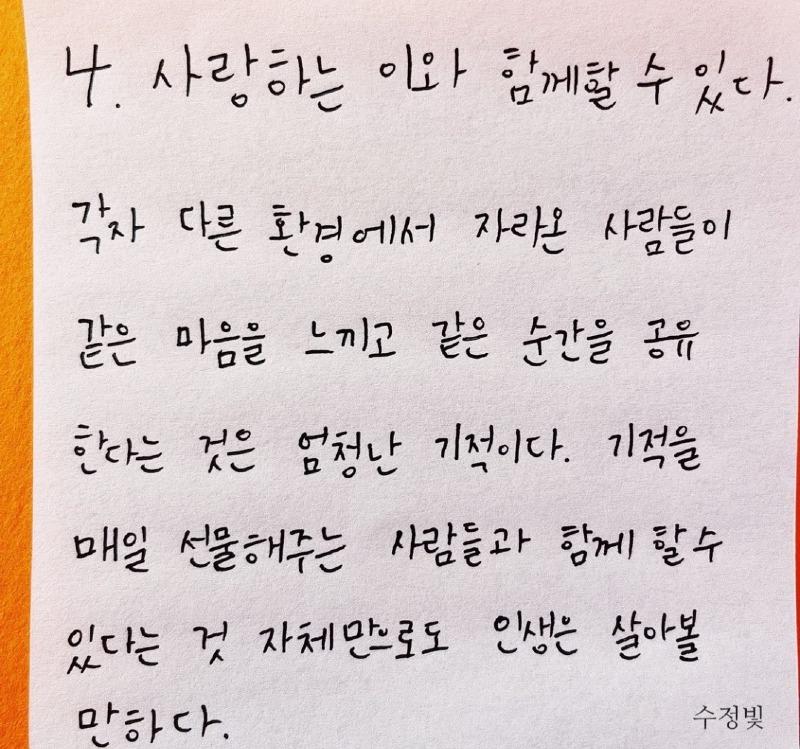 4. 사랑하는 이와 함께할 수 있다.
각자 다른 환경에서 자라온 사람들이
같은 마음을 느끼고 같은 순간을 공유
한다는 것은 엄청난 기적이다. 기적을
매일 선물해주는 사람들과 함께 할 수
있다는 것 자체만으로도 인생은 살아볼
만하다.
수정빛